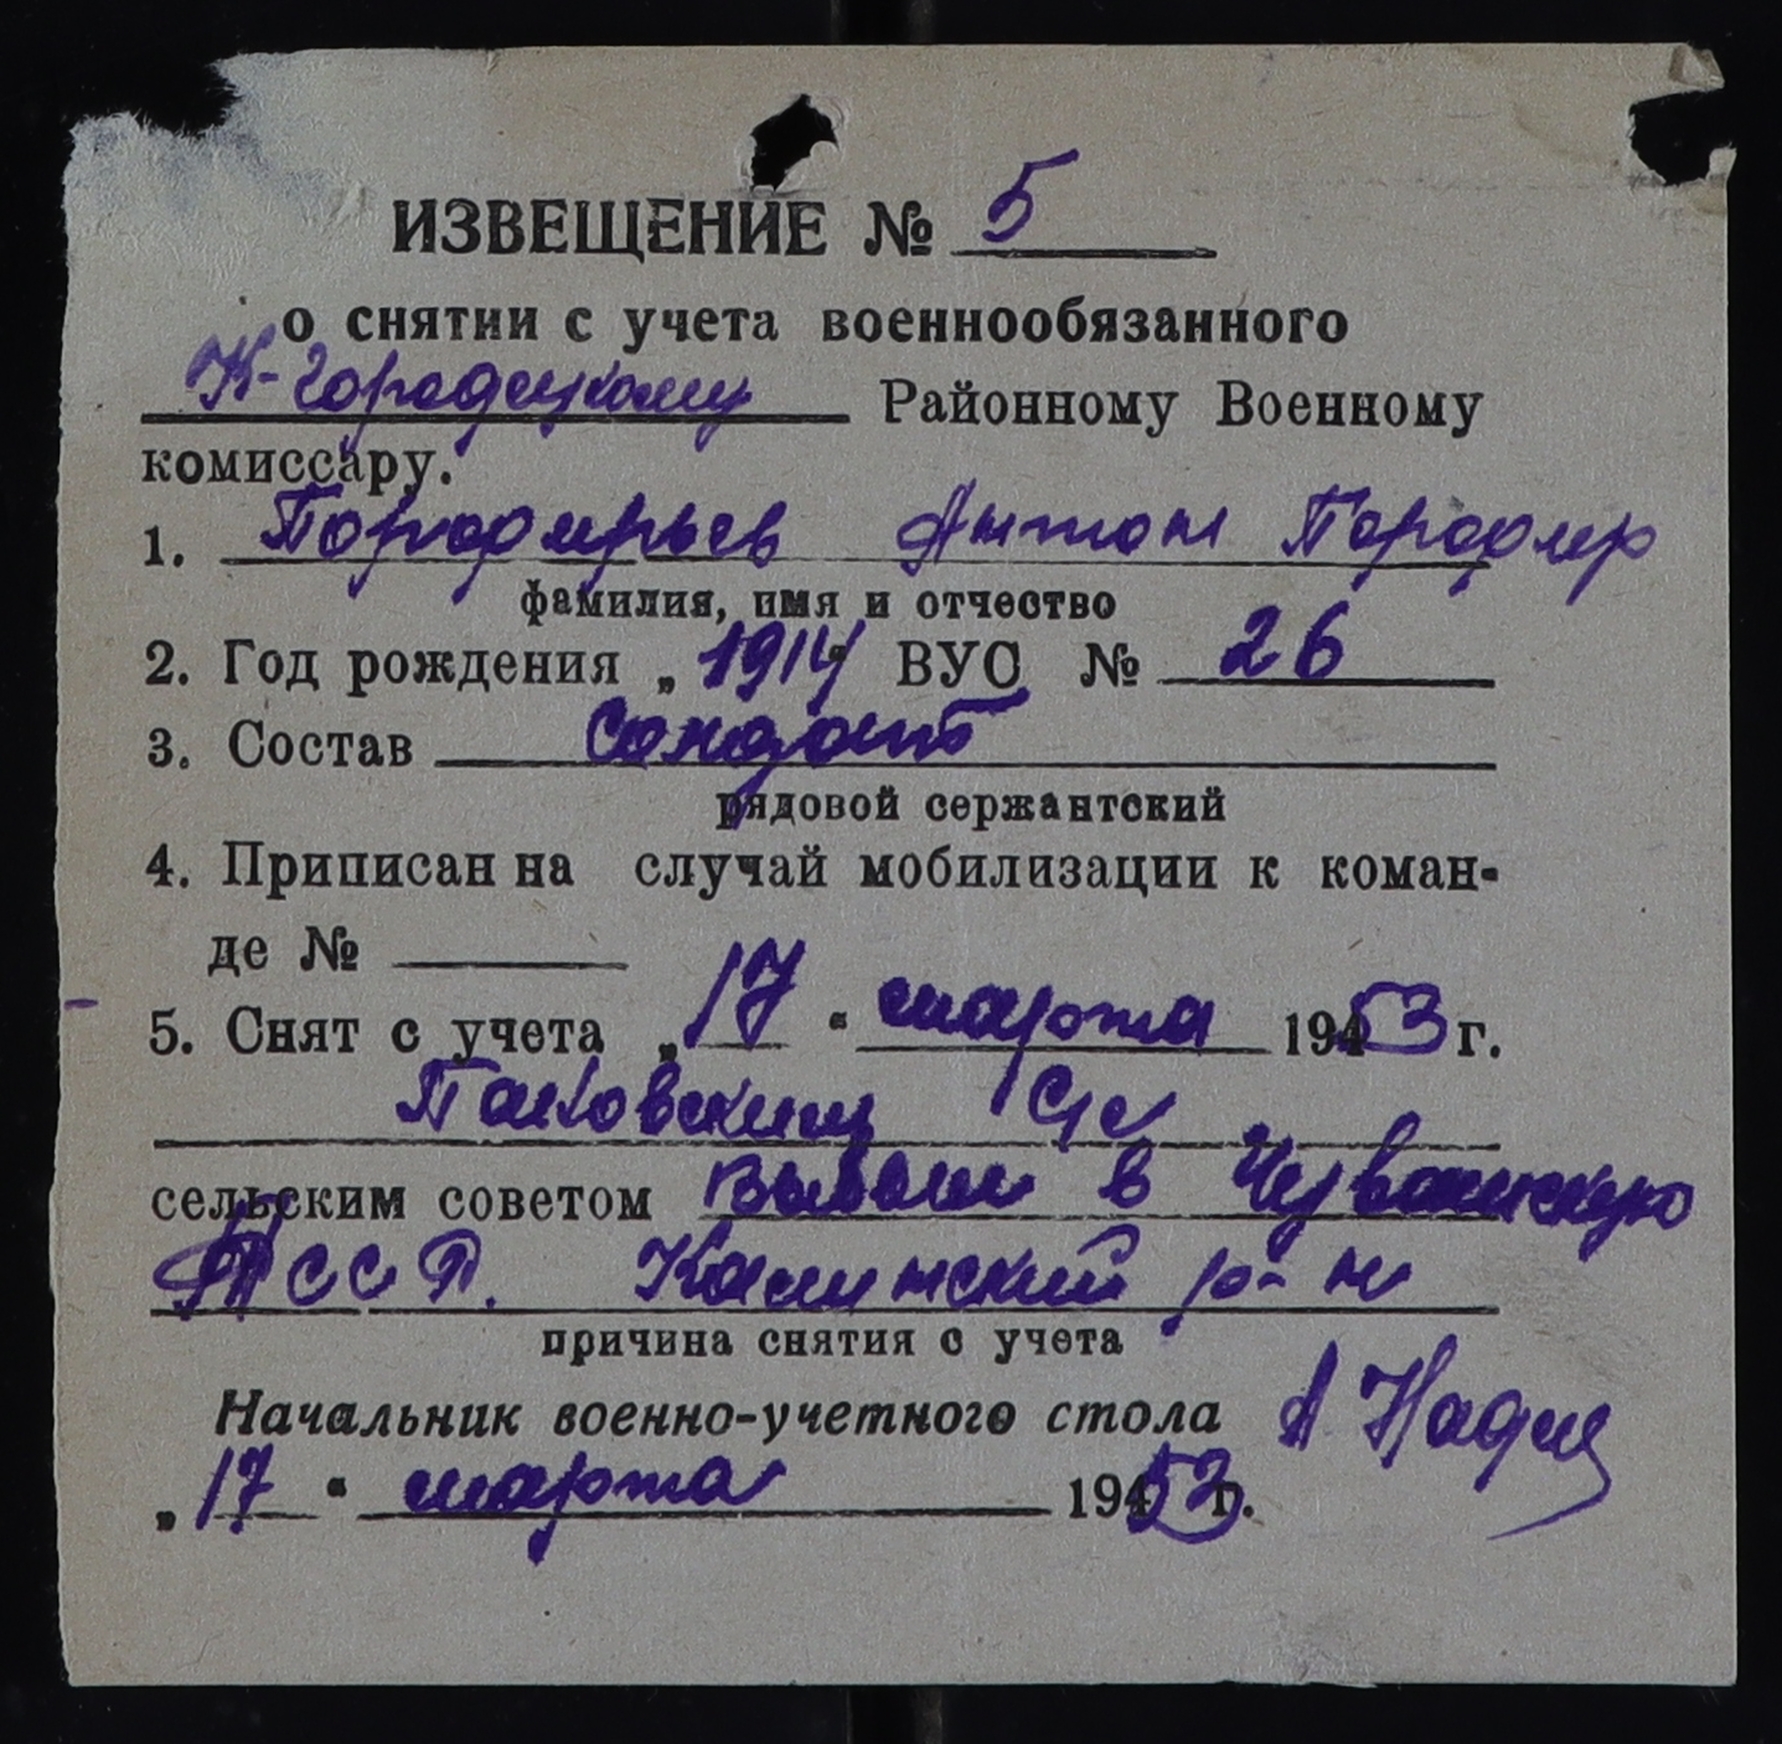 ИЗВЕЩЕНИЕ № 5
о снятии с учета военнообязанного
К-городецкому Районному Военному
комиссару.
1. Порфирьев Антон Порфир
фамилия, имя и отчество
2. Год рождения „1914" ВУС № 26
3. Состав Солдат
рядовой сержантский
4. Приписан на случай мобилизации к коман-
де №
5. Снят с учета „17" марта 1953 г.
Паковским С/с
сельским советом выбыл в Чувашскую
АССР. Калининский р-н
причина снятия с учета
Начальник военно-учетного стола А
„17" марта 1953 г.